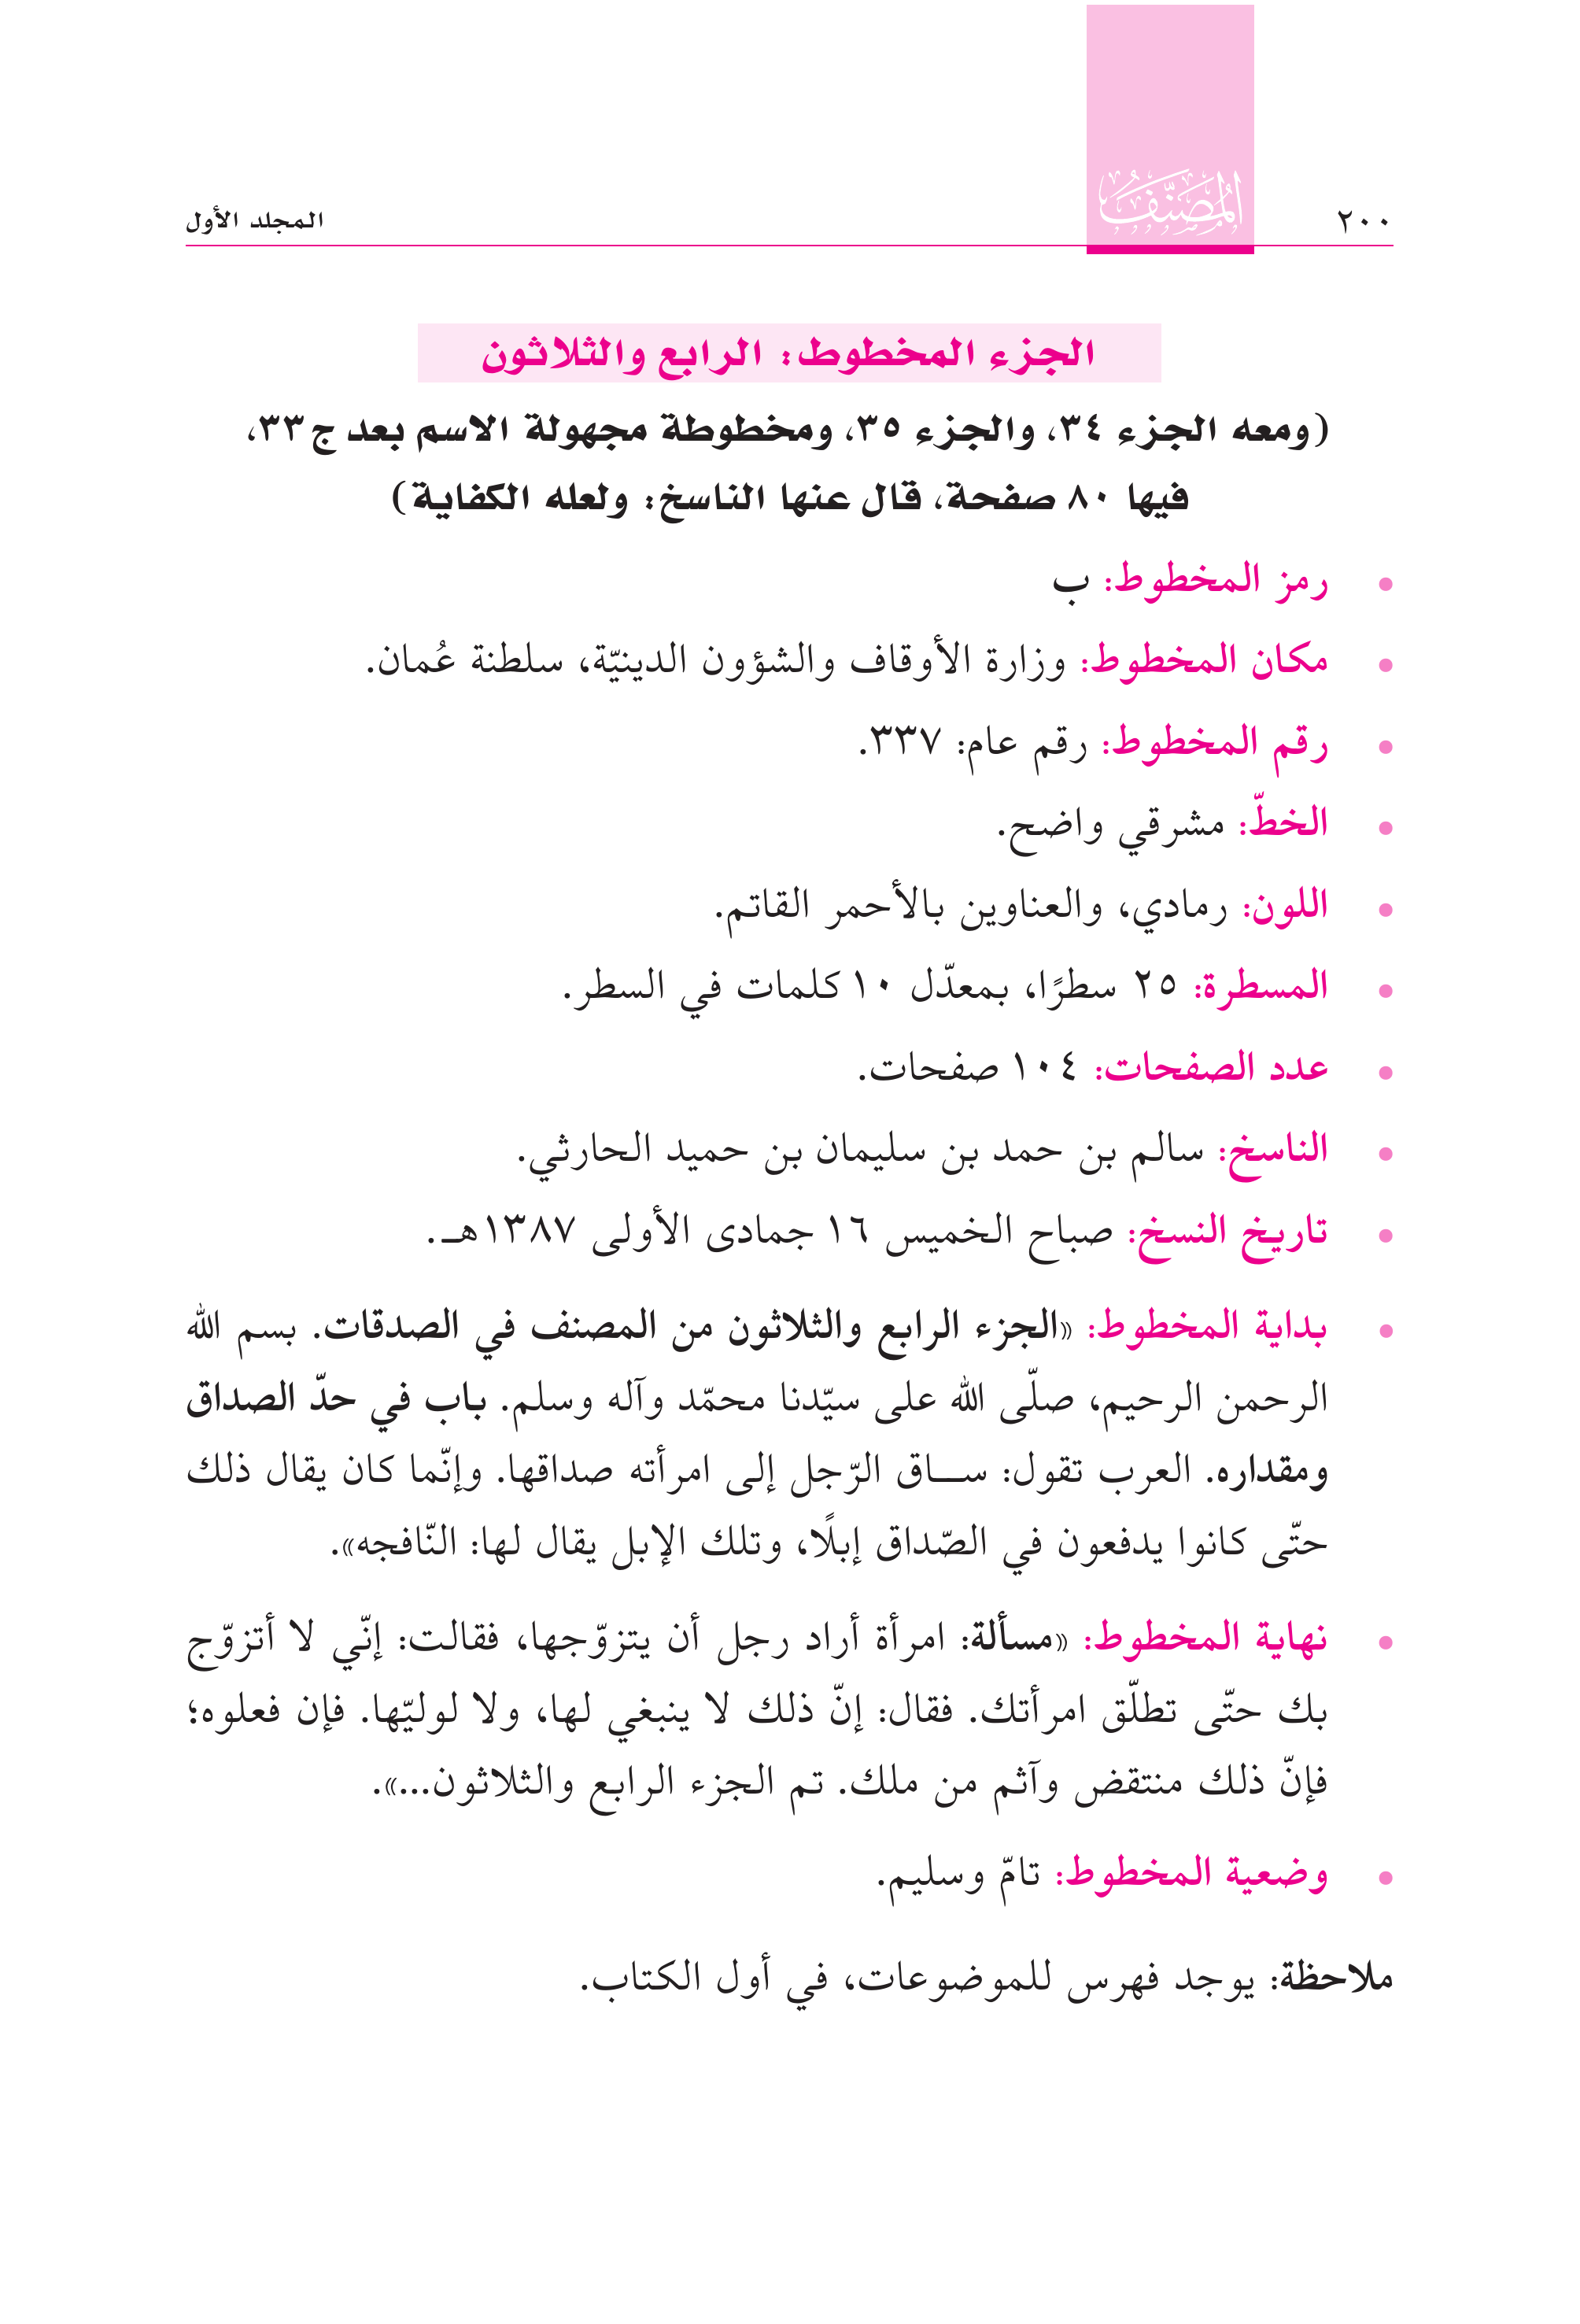 ٢٠٠
المصنَّف
المجلد الأول
الجزء المخطوط: الرابع والثلاثون
(ومعه الجزء ٣٤، والجزء ٣٥، ومخطوطة مجهولة الاسم بعد ج٣٣،
فيها ٨٠ صفحة، قال عنها الناسخ: ولعله الكفاية)
• رمز المخطوط: ب
• مكان المخطوط: وزارة الأوقاف والشؤون الدينيّة، سلطنة عُمان.
• رقم المخطوط: رقم عام: ٣٣٧.
• الخطّ: مشرقي واضح.
• اللون: رمادي، والعناوين بالأحمر القاتم.
• المسطرة: ٢٥ سطرًا، بمعدّل ١٠ كلمات في السطر.
• عدد الصفحات: ١٠٤ صفحات.
• الناسخ: سالم بن حمد بن سليمان بن حميد الحارثي.
• تاريخ النسخ: صباح الخميس ١٦ جمادى الأولى ١٣٨٧هـ.
• بداية المخطوط: «الجزء الرابع والثلاثون من المصنف في الصدقات. بسم الله
الرحمن الرحيم، صلّى الله على سيّدنا محمّد وآله وسلم. باب في حدّ الصداق
ومقداره. العرب تقول: ســاق الرّجل إلى امرأته صداقها. وإنّما كان يقال ذلك
حتّى كانوا يدفعون في الصّداق إبلًا، وتلك الإبل يقال لها: النّافجه».
• نهاية المخطوط: «مسألة: امرأة أراد رجل أن يتزوّجها، فقالت: إنّي لا أتزوّج
بك حتّى تطلّق امرأتك. فقال: إنّ ذلك لا ينبغي لها، ولا لوليّها. فإن فعلوه؛
فإنّ ذلك منتقض وآثم من ملك. تم الجزء الرابع والثلاثون...».
• وضعية المخطوط: تامّ وسليم.
ملاحظة: يوجد فهرس للموضوعات، في أول الكتاب.